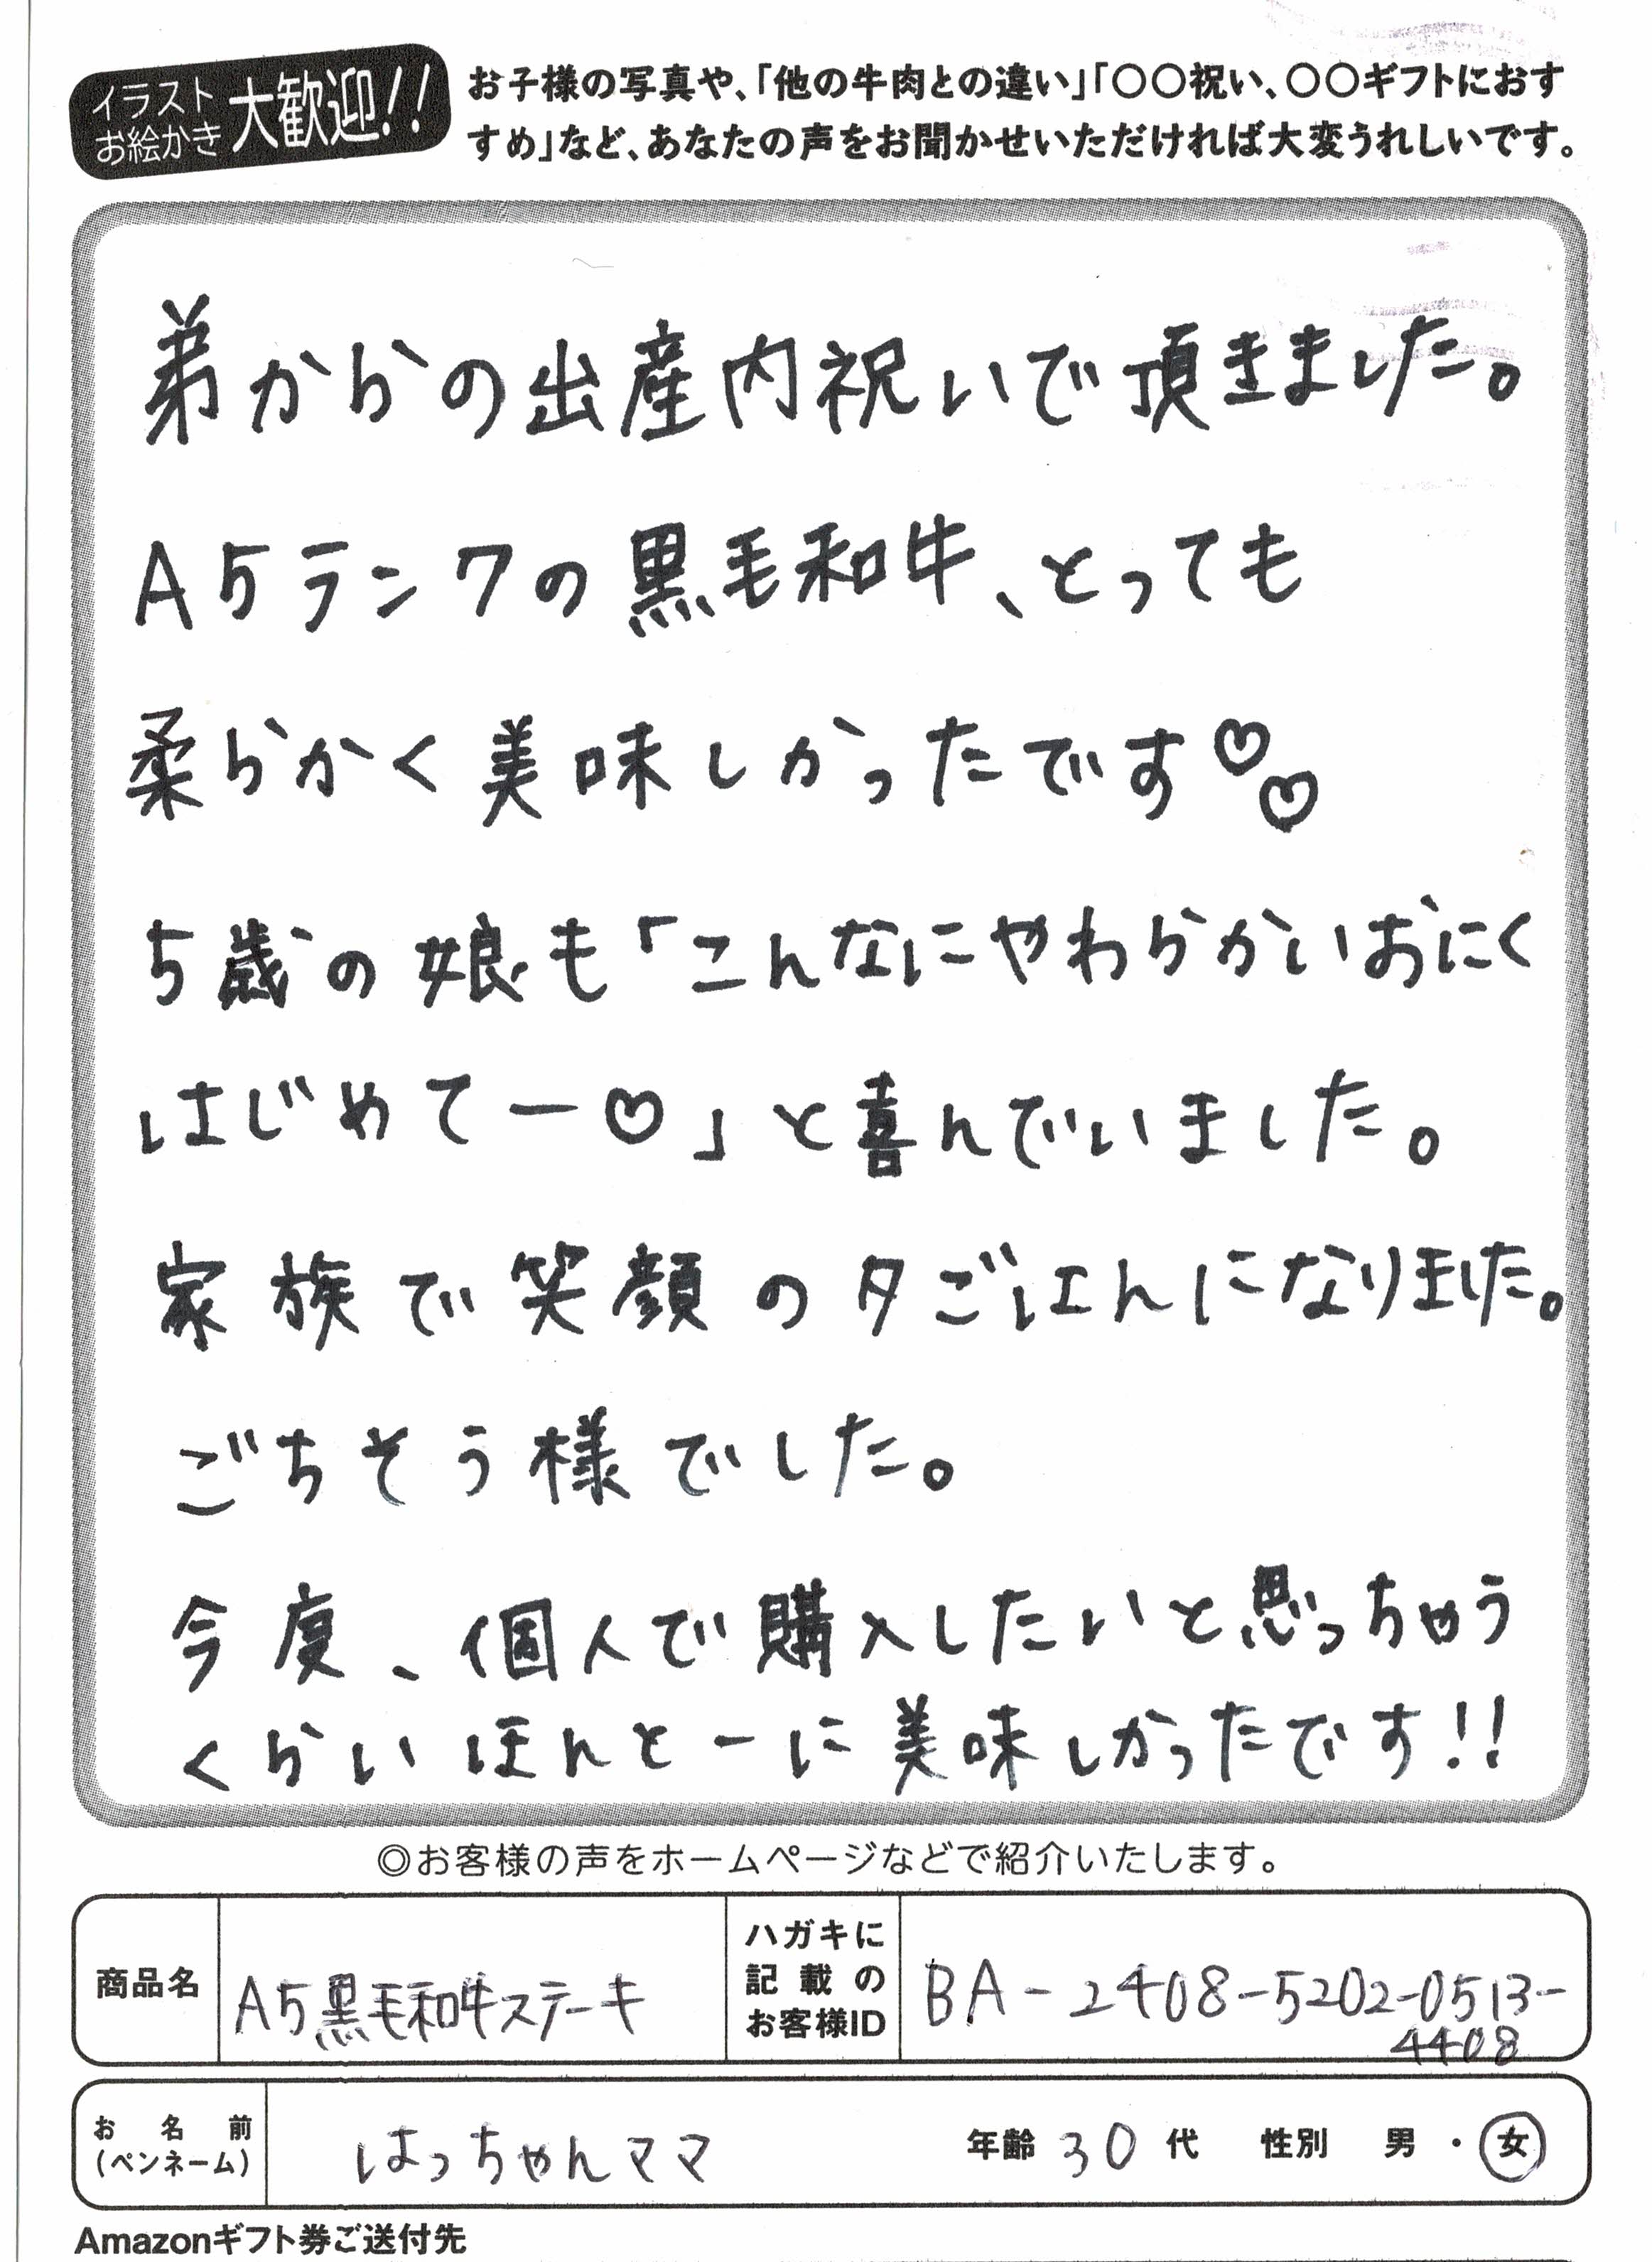 イラスト
お絵かき
大歓迎!!
お子様の写真や、「他の牛肉との違い」「〇〇祝い、〇〇ギフトにおす
すめ」など、あなたの声をお聞かせいただければ大変うれしいです。
弟からの出産内祝いで頂きました。
A5ランクの黒毛和牛、とっても
柔らかく美味しかったです♡♡
5歳の娘も「こんなにやわらかいおにく
はじめてー♡」と喜んでいました。
家族で笑顔の夕ごはんになりました。
ごちそう様でした。
今度、個人で購入したいと思っちゃう
くらいほんとーに美味しかったです!!
◎お客様の声をホームページなどで紹介いたします。
商品名 A5黒毛和牛ステーキ
ハガキに
記載の
お客様ID
BA-2408-5202-0513-
4408
お名前
(ペンネーム)
はっちゃんママ 年齢 30代 性別 男・女
Amazonギフト券ご送付先